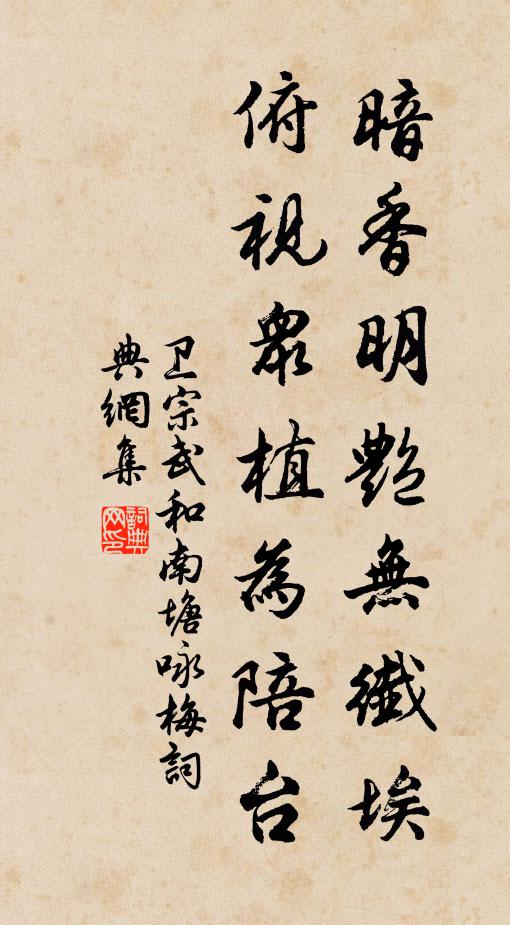 暗香明艷無纖埃
俯視眾植為陪台
卫宗武和南塘咏梅詞
典網集
詞典網印